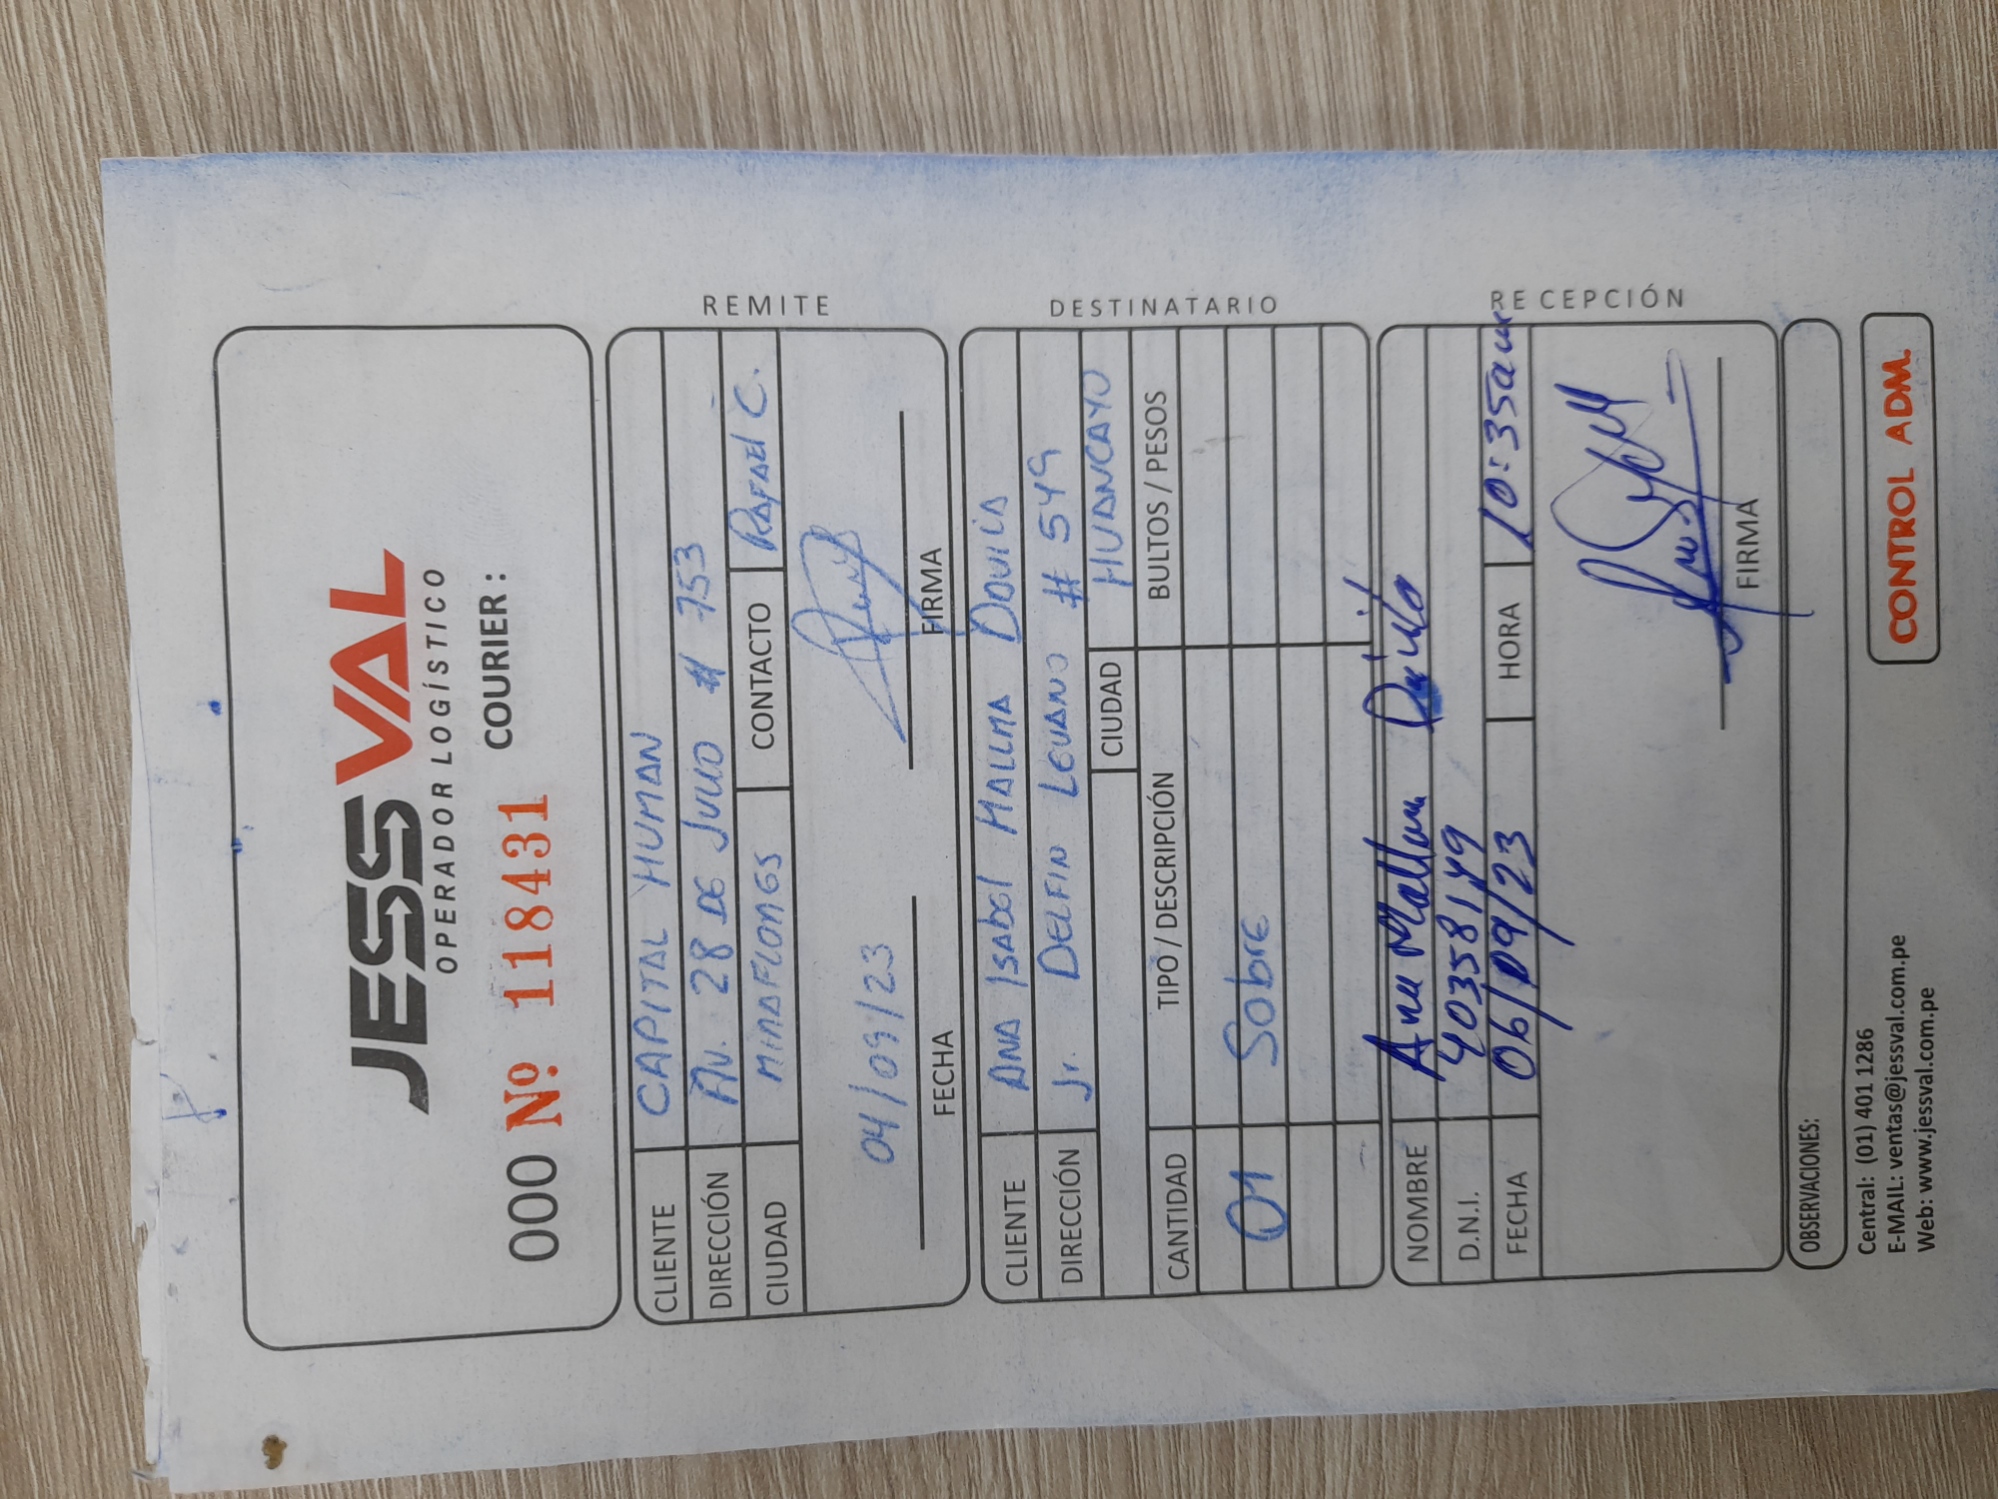 JESSVAL
OPERADOR LOGÍSTICO
COURIER :
000 Nº 118431
CLIENTE CAPITAL HUMAN
DIRECCIÓN AV. 28 DE JULIO # 753
CIUDAD MIRAFLORES CONTACTO RAFAEL C.
04/09/23
FECHA FIRMA
REMITE
CLIENTE ANA ISABEL MALLMA DAVILA
DIRECCIÓN Jr. DELFIN LEVANO # 549
CIUDAD HUANCAYO
CANTIDAD TIPO / DESCRIPCIÓN BULTOS / PESOS
01 Sobre
DESTINATARIO
NOMBRE Ana Mallma Dávila
D.N.I. 40358149
FECHA 06/09/23 HORA 10:35am
FIRMA
RECEPCIÓN
OBSERVACIONES:
Central: (01) 401 1286
E-MAIL: ventas@jessval.com.pe
Web: www.jessval.com.pe
CONTROL ADM.